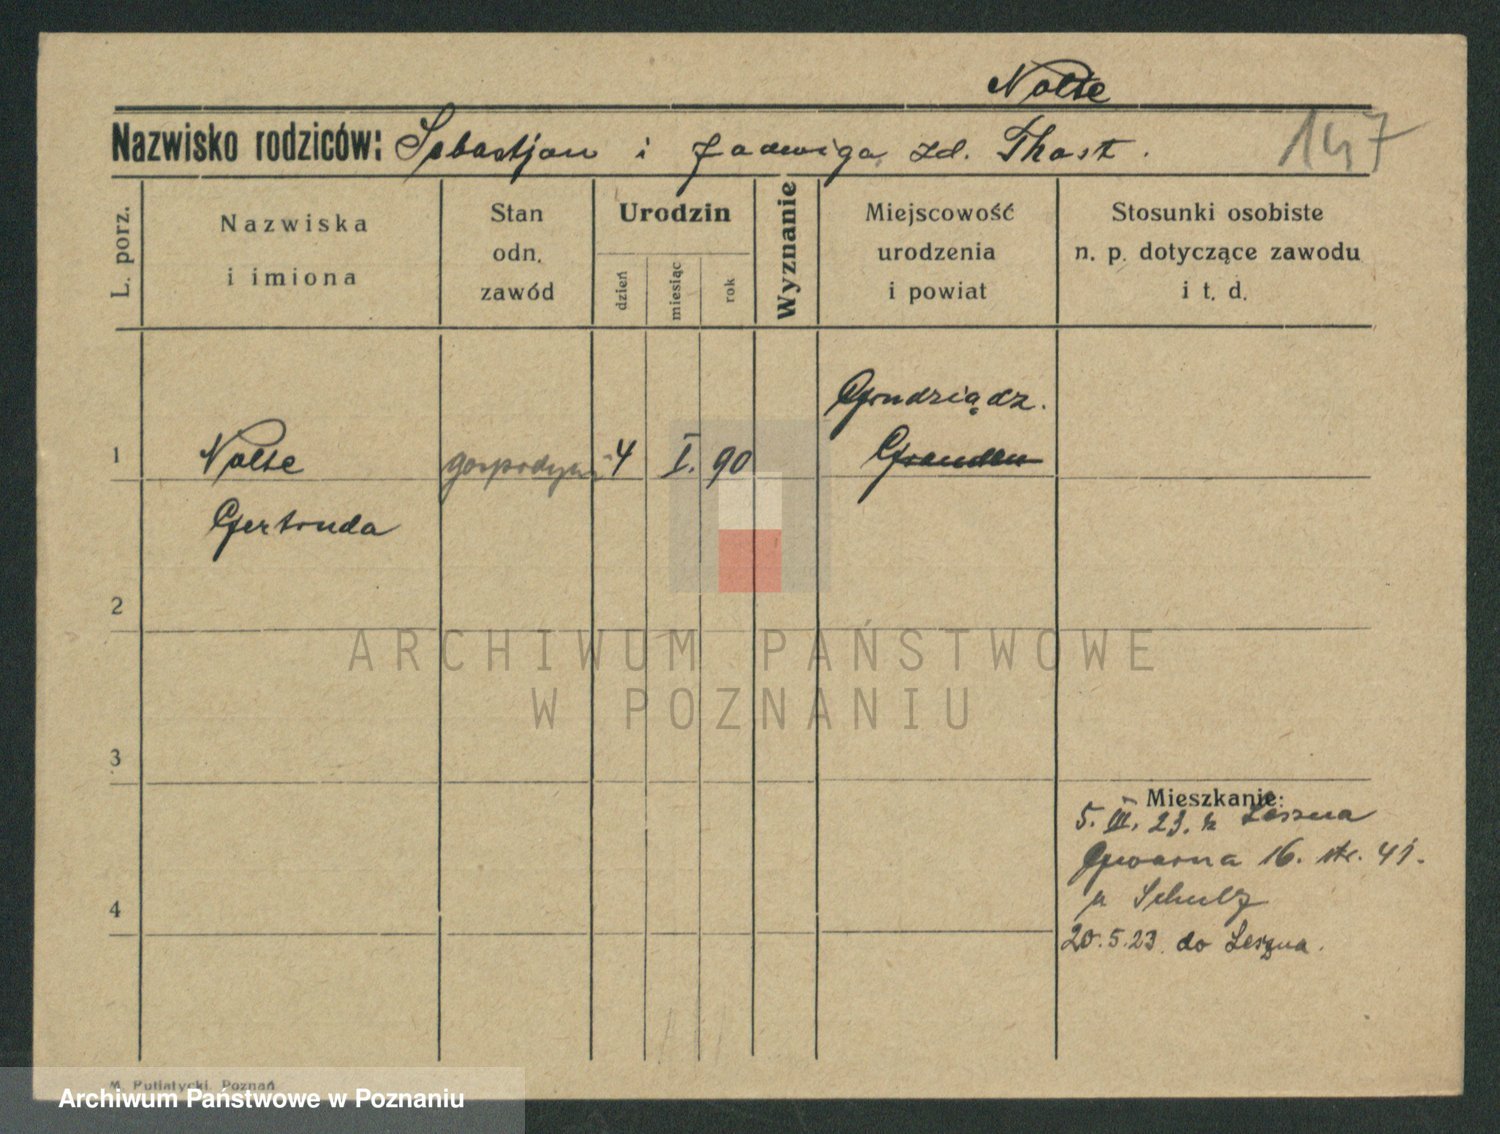 Nolte
Nazwisko rodziców: Sebastjan i Jadwiga zd. Thost.
147
L. porz.
Nazwiska
i imiona
Stan
odn.
zawód
Urodzin
dzień
miesiąc
rok
Wyznanie
Miejscowość
urodzenia
i powiat
Stosunki osobiste
n. p. dotyczące zawodu
i t. d.
Grudziądz.
1 Nolte gospodyni 4 I. 90 Grauden
Gertruda
2
ARCHIWUM PAŃSTWOWE
W POZNANIU
3
Mieszkanie:
5. III. 23. z Leszna
Gwarna 16. str. 41.
u Schulz
4
20.5.23 do Leszna.
M. Putiatycki, Poznań
Archiwum Państwowe w Poznaniu